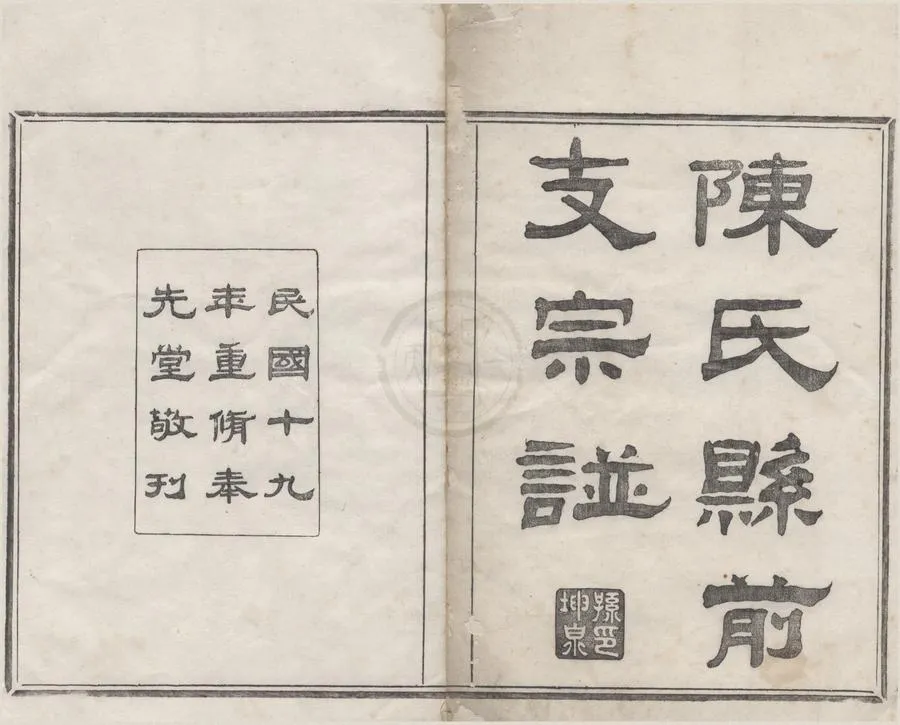 陳氏縣前
支宗譜
孫印
坤泉
民國十九
年重脩奉
先堂敬刊